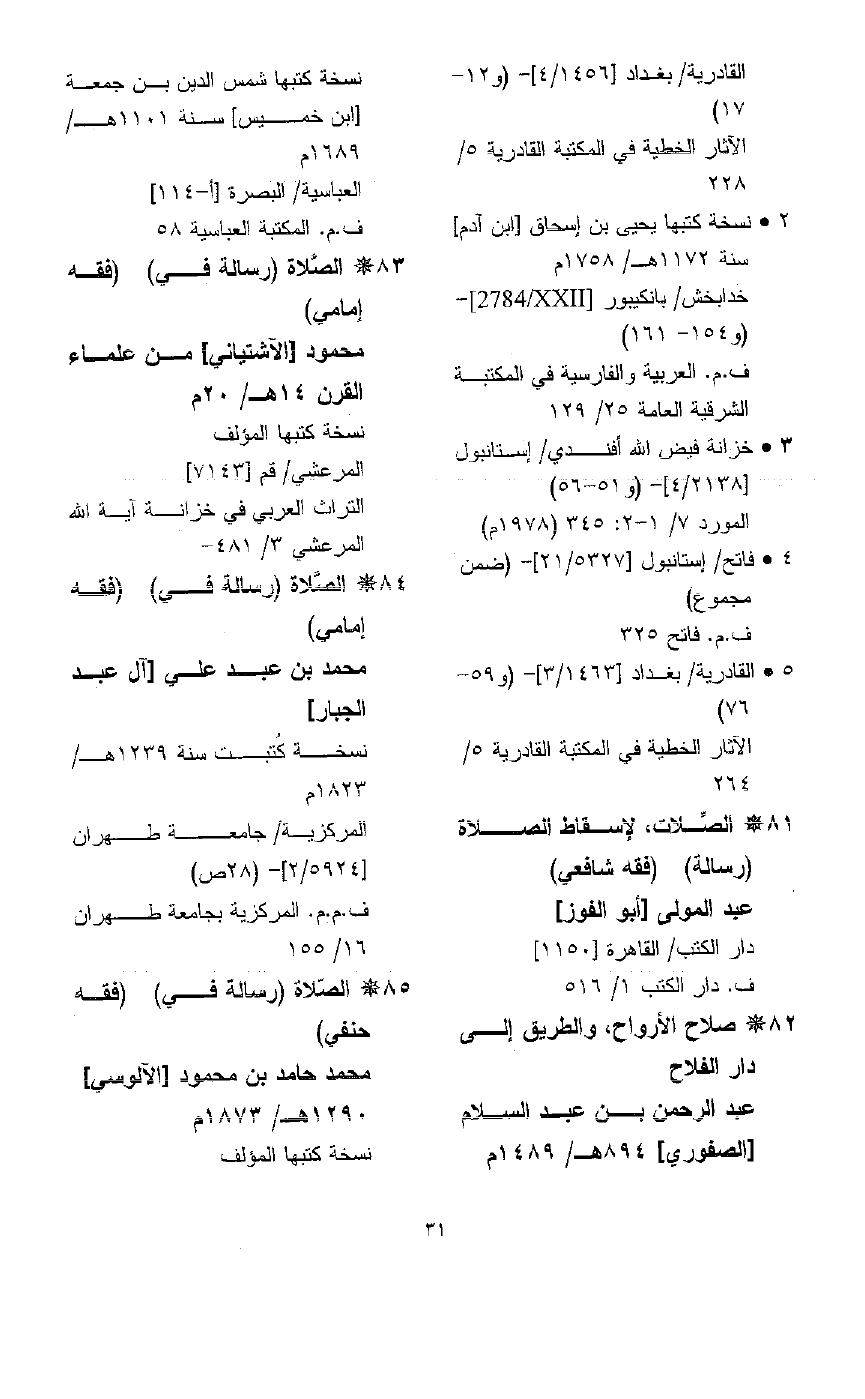 القادرية/ بغداد [٤/١٤٥٦]- (و١٢-
١٧)
الآثار الخطية في المكتبة القادرية ٥/
٢٢٨
٢ • نسخة كتبها يحيى بن إسحاق [ابن آدم]
سنة ١١٧٢هـ/ ١٧٥٨م
خدابخش/ بانكيبور [2784/XXII]-
(و١٥٤- ١٦١)
ف.م. العربية والفارسية في المكتبة
الشرقية العامة ٢٥/ ١٢٩
٣ • خزانة فيض الله أفندي/ إستانبول
[٤/٢١٣٨]- (و٥١-٥٦)
المورد ٧/ ١-٢: ٣٤٥ (١٩٧٨م)
٤ • فاتح/ إستانبول [٢١/٥٣٢٧]- (ضمن
مجموع)
ف.م. فاتح ٣٢٥
٥ • القادرية/ بغداد [٣/١٤٦٣]- (و٥٩-
٧٦)
الآثار الخطية في المكتبة القادرية ٥/
٢٦٤
٨١❋ الصِّلات، لإسقاط الصلاة
(رسالة) (فقه شافعي)
عبد المولى [أبو الفوز]
دار الكتب/ القاهرة [١١٥٠]
ف. دار الكتب ١/ ٥١٦
٨٢❋ صلاح الأرواح، والطريق إلى
دار الفلاح
عبد الرحمن بن عبد السلام
[الصفوري] ٨٩٤هـ/ ١٤٨٩م
نسخة كتبها شمس الدين بن جمعة
[ابن خميس] سنة ١١٠١هـ/
١٦٨٩م
العباسية/ البصرة [أ-١١٤]
ف.م. المكتبة العباسية ٥٨
٨٣❋ الصَّلاة (رسالة في) (فقه
إمامي)
محمود [الآشتياني] من علماء
القرن ١٤هـ/ ٢٠م
نسخة كتبها المؤلف
المرعشي/ قم [٧١٤٣]
التراث العربي في خزانة آية الله
المرعشي ٣/ ٤٨١-
٨٤❋ الصَّلاة (رسالة في) (فقه
إمامي)
محمد بن عبد علي [آل عبد
الجبار]
نسخة كُتبت سنة ١٢٣٩هـ/
١٨٢٣م
المركزية/ جامعة طهران
[٢/٥٩٢٤]- (٢٨ص)
ف.م.م. المركزية بجامعة طهران
١٦/ ١٥٥
٨٥❋ الصّلاة (رسالة في) (فقه
حنفي)
محمد حامد بن محمود [الآلوسي]
١٢٩٠هـ/ ١٨٧٣م
نسخة كتبها المؤلف
٣١